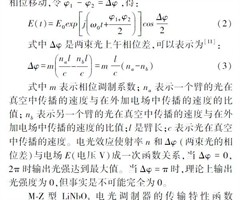 相位移动,令 φ₁ - φ₂ = Δφ,得:
E(t) = E₀exp[j(ω₀t + (φ₁,φ₂)/2)]cos Δφ/2 (2)
式中 Δφ 是两束光上午相位差,可以表示为[11]:
Δφ = m(nₐl/c - n_b l/c) = m l/c (nₐ - n_b) (3)
式中 m 表示相位调制系数; nₐ 表示一个臂的光在
真空中传播的速度与在外加电场中传播的速度的比
值; n_b 表示另一个臂的光在真空中传播的速度与在外
加电场中传播的速度的比值; l 是臂长; c 表示光在真空
中传播的速度。电光效应使射率 n 和 Δφ (两束光的相
位差)与电场 E(电压 V)成一次函数关系,当 Δφ = 0,
2π 时输出光强达到最大值。当 Δφ = π 时,理论上输出
光强度为 0,但事实是不可能完全为 0。
M-Z 型 LiNbO₃ 电光调制器的传输特性函数